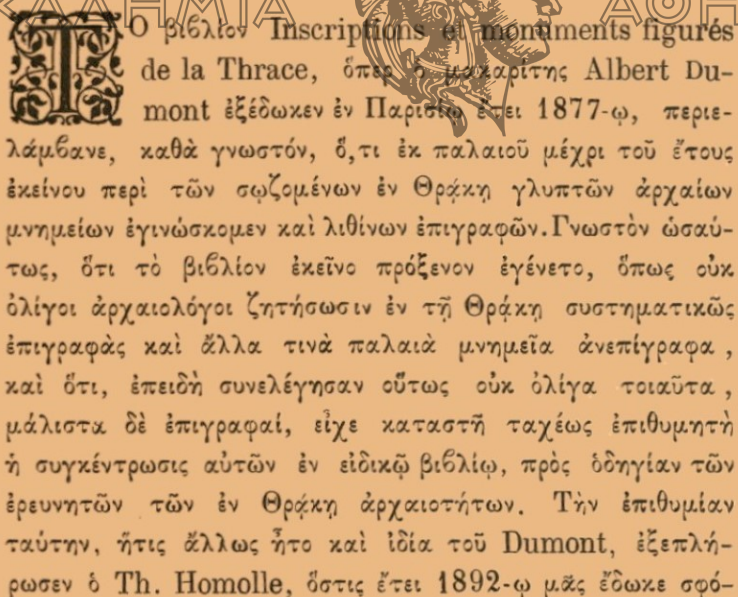 ΑΚΑΔΗΜΙΑ ΑΘΗ
ΤΟ βιϐλίον Inscriptions et monuments figurés
de la Thrace, ὅπερ ὁ μακαρίτης Albert Du-
mont ἐξέδωκεν ἐν Παρισίῳ ἔτει 1877-ῳ, περιε-
λάμϐανε, καθὰ γνωστόν, ὅ,τι ἐκ παλαιοῦ μέχρι τοῦ ἔτους
ἐκείνου περὶ τῶν σῳζομένων ἐν Θρᾴκῃ γλυπτῶν ἀρχαίων
μνημείων ἐγινώσκομεν καὶ λιθίνων ἐπιγραφῶν. Γνωστὸν ὡσαύ-
τως, ὅτι τὸ βιϐλίον ἐκεῖνο πρόξενον ἐγένετο, ὅπως οὐκ
ὀλίγοι ἀρχαιολόγοι ζητήσωσιν ἐν τῇ Θρᾴκῃ συστηματικῶς
ἐπιγραφὰς καὶ ἄλλα τινὰ παλαιὰ μνημεῖα ἀνεπίγραφα,
καὶ ὅτι, ἐπειδὴ συνελέγησαν οὕτως οὐκ ὀλίγα τοιαῦτα,
μάλιστα δὲ ἐπιγραφαί, εἶχε καταστῆ ταχέως ἐπιθυμητὴ
ἡ συγκέντρωσις αὐτῶν ἐν εἰδικῷ βιϐλίῳ, πρὸς ὁδηγίαν τῶν
ἐρευνητῶν τῶν ἐν Θρᾴκῃ ἀρχαιοτήτων. Τὴν ἐπιθυμίαν
ταύτην, ἥτις ἄλλως ἦτο καὶ ἰδία τοῦ Dumont, ἐξεπλή-
ρωσεν ὁ Th. Homolle, ὅστις ἔτει 1892-ῳ μᾶς ἔδωκε σφό-